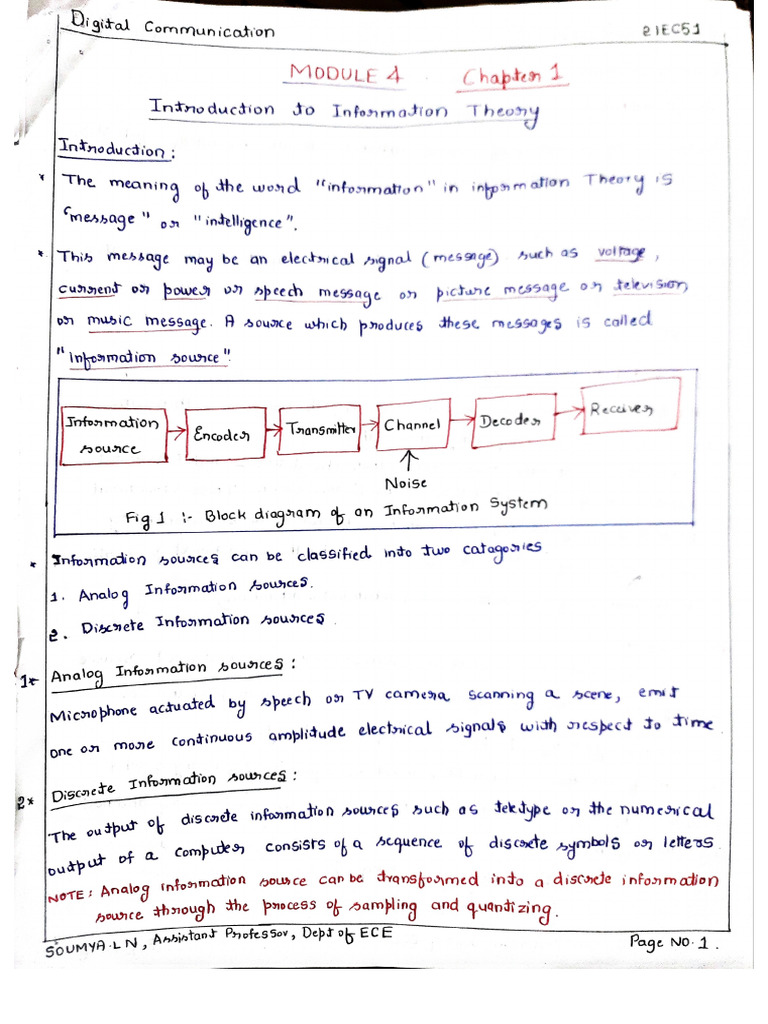 Digital Communication 21EC51
MODULE 4 Chapter 1
Introduction to Information Theory
Introduction:
* The meaning of the word "information" in information Theory is
"message" or "intelligence".
* This message may be an electrical signal (message) such as voltage,
current or power or speech message or picture message or television
or music message. A source which produces these messages is called
"information source".
Information source
Encoder
Transmitter
Channel
Decoder
Receiver
Noise
Fig 1 :- Block diagram of an Information System
* Information sources can be classified into two catagories
1. Analog Information sources.
2. Discrete Information sources.
1* Analog Information sources:
Microphone actuated by speech or TV camera scanning a scene, emit
one or more continuous amplitude electrical signals with respect to time
2* Discrete Information sources:
The output of discrete information sources such as teletype or the numerical
output of a computer consists of a sequence of discrete symbols or letters.
NOTE: Analog information source can be transformed into a discrete information
source through the process of sampling and quantizing.
SOUMYA.L N, Assistant Professor, Dept of ECE Page NO. 1.